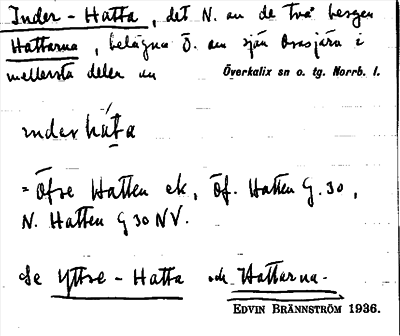 Inder - Hatta, det N. av de två bergen
Hattarna, belägna Ö. om sjön Orasjärv i
mellersta delen av Överkalix sn o. tg. Norrb. l.
inderháta
= Öfre Hatten ek, Öf. Hatten G. 30,
N. Hatten G 30 NV.
Se Yttre - Hatta och Hattarna.
EDVIN BRÄNNSTRÖM 1936.